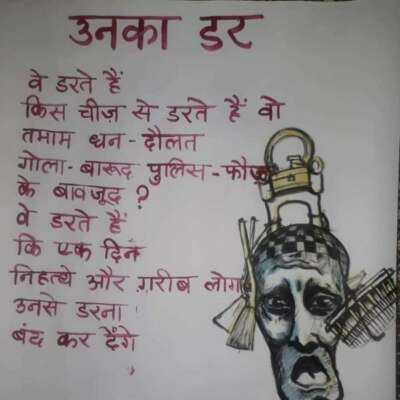 उनका डर
वे डरते हैं
किस चीज़ से डरते हैं वो
तमाम धन - दौलत
गोला - बारूद पुलिस - फौज
के बावजूद ?
वे डरते हैं
कि एक दिन
निहत्थे और ग़रीब लोग
उनसे डरना
बंद कर देंगे